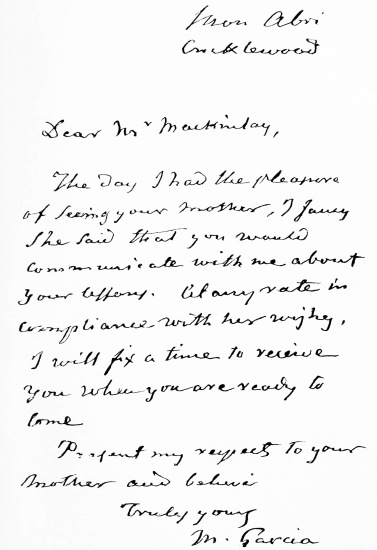 Mon Abri
Cricklewood
Dear Mr Mackinlay,
The day I had the pleasure
of seeing your mother, I fancy
she said that you would
communicate with me about
your lessons. At any rate in
compliance with her wishes,
I will fix a time to receive
you when you are ready to
come
Present my respect to your
mother and believe
Truly yours
M. Garcia